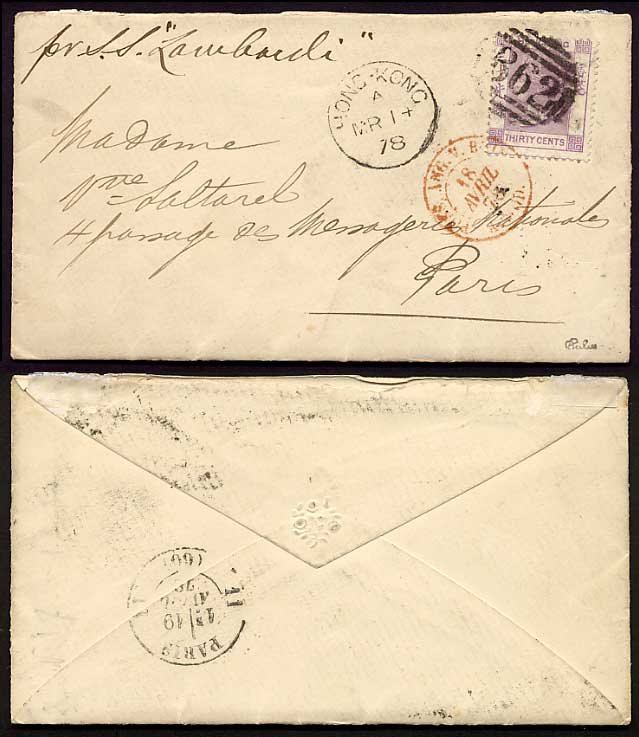 pr S.S. "Lombardi"
HONG-KONG
A
MR 14
78
362
THIRTY CENTS
18
AVRIL
Madame
Vve Saltarel
4 passage des Messageries Nationales
Paris
(60)
PARIS